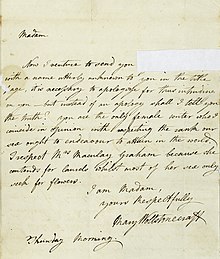 Madam,
Now I venture to send you
with a name utterly unknown to you in the title
page, it is necessary to apologize for thus intruding
on you — but instead of an apology shall I tell you
the truth? You are the only female writer who I
coincide in opinion with respecting the rank our
sex ought to endeavour to attain in the world.
I respect Mrs Macaulay Graham because she
contends for laurels whilst most of her sex only
seek for flowers.
I am Madam,
yours Respectfully
Mary Wollstonecraft
Thursday Morning.